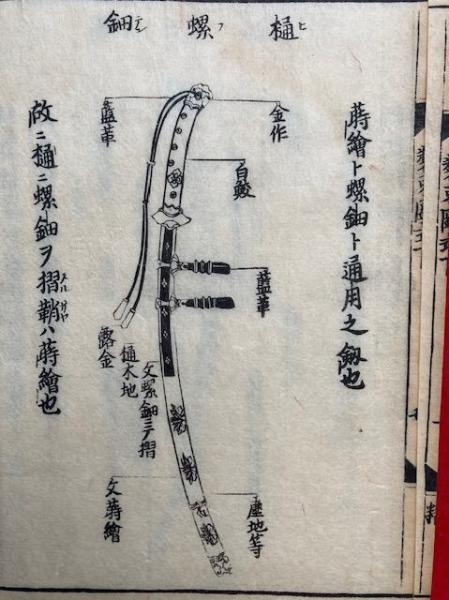 樋螺鈿
ヒラデン
蒔繪ト螺鈿ト通用之劔也
金作
白鮫
藍革
塵地等
藍革
露金
樋木地
文螺鈿ニテ摺
文蒔繪
故ニ樋ニ螺鈿ヲ摺鞘ハ蒔繪也
スルサヤ